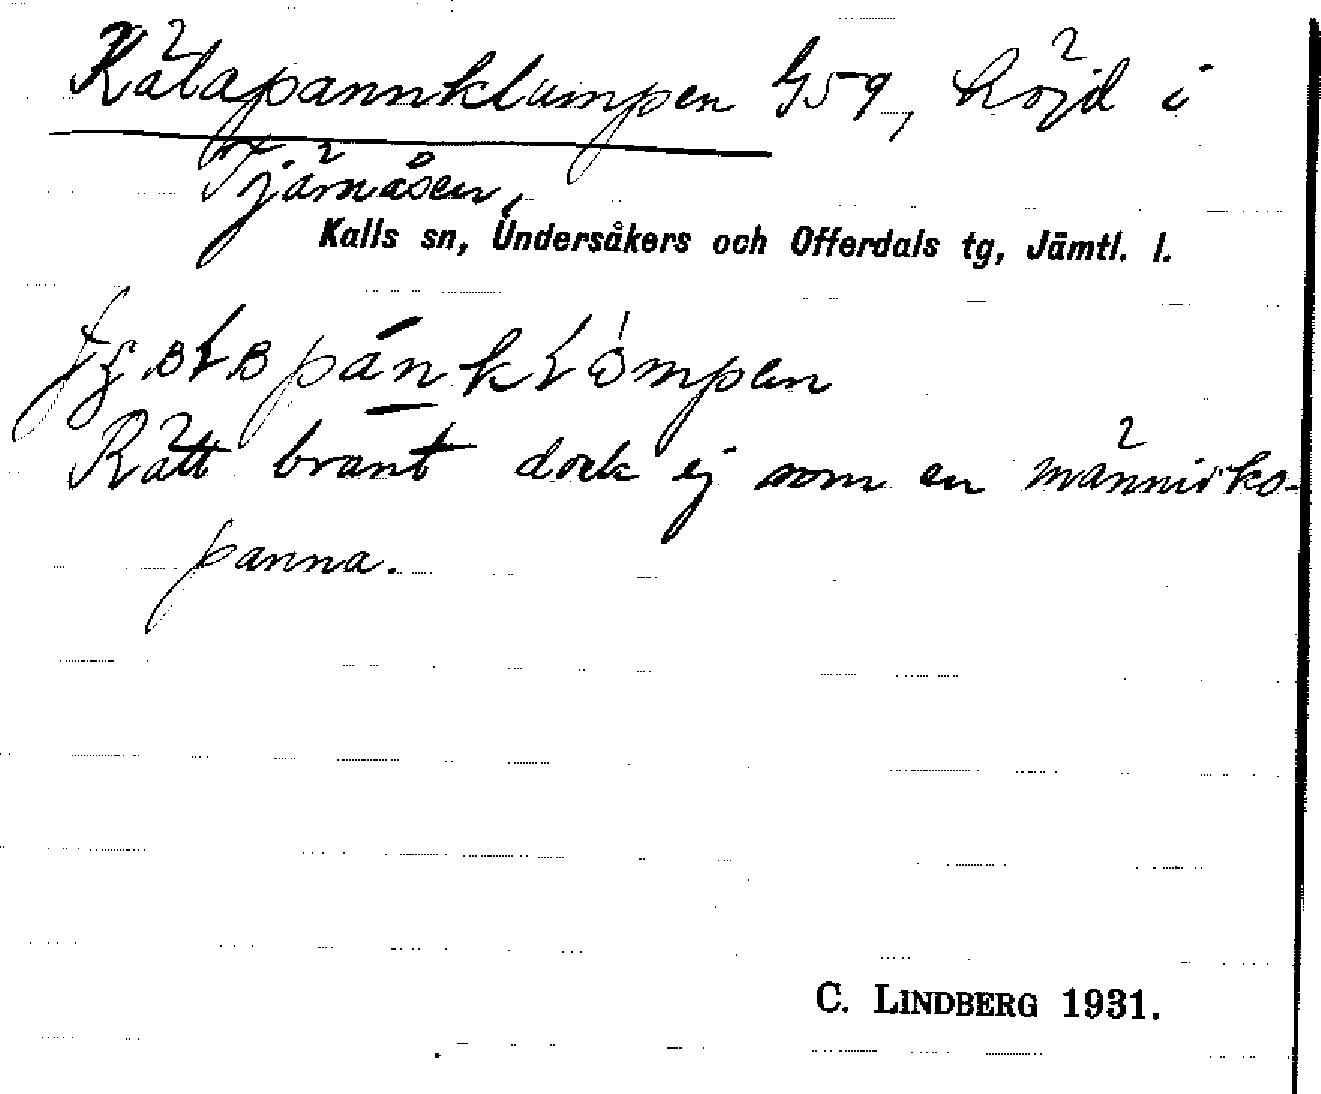 Kälapannklumpen 459, höjd i
Tjärnåsen,
Kalls sn, Undersåkers och Offerdals tg, Jämtl. l.
Rätt brant dock ej som en människo-
panna.
C. LINDBERG 1931.